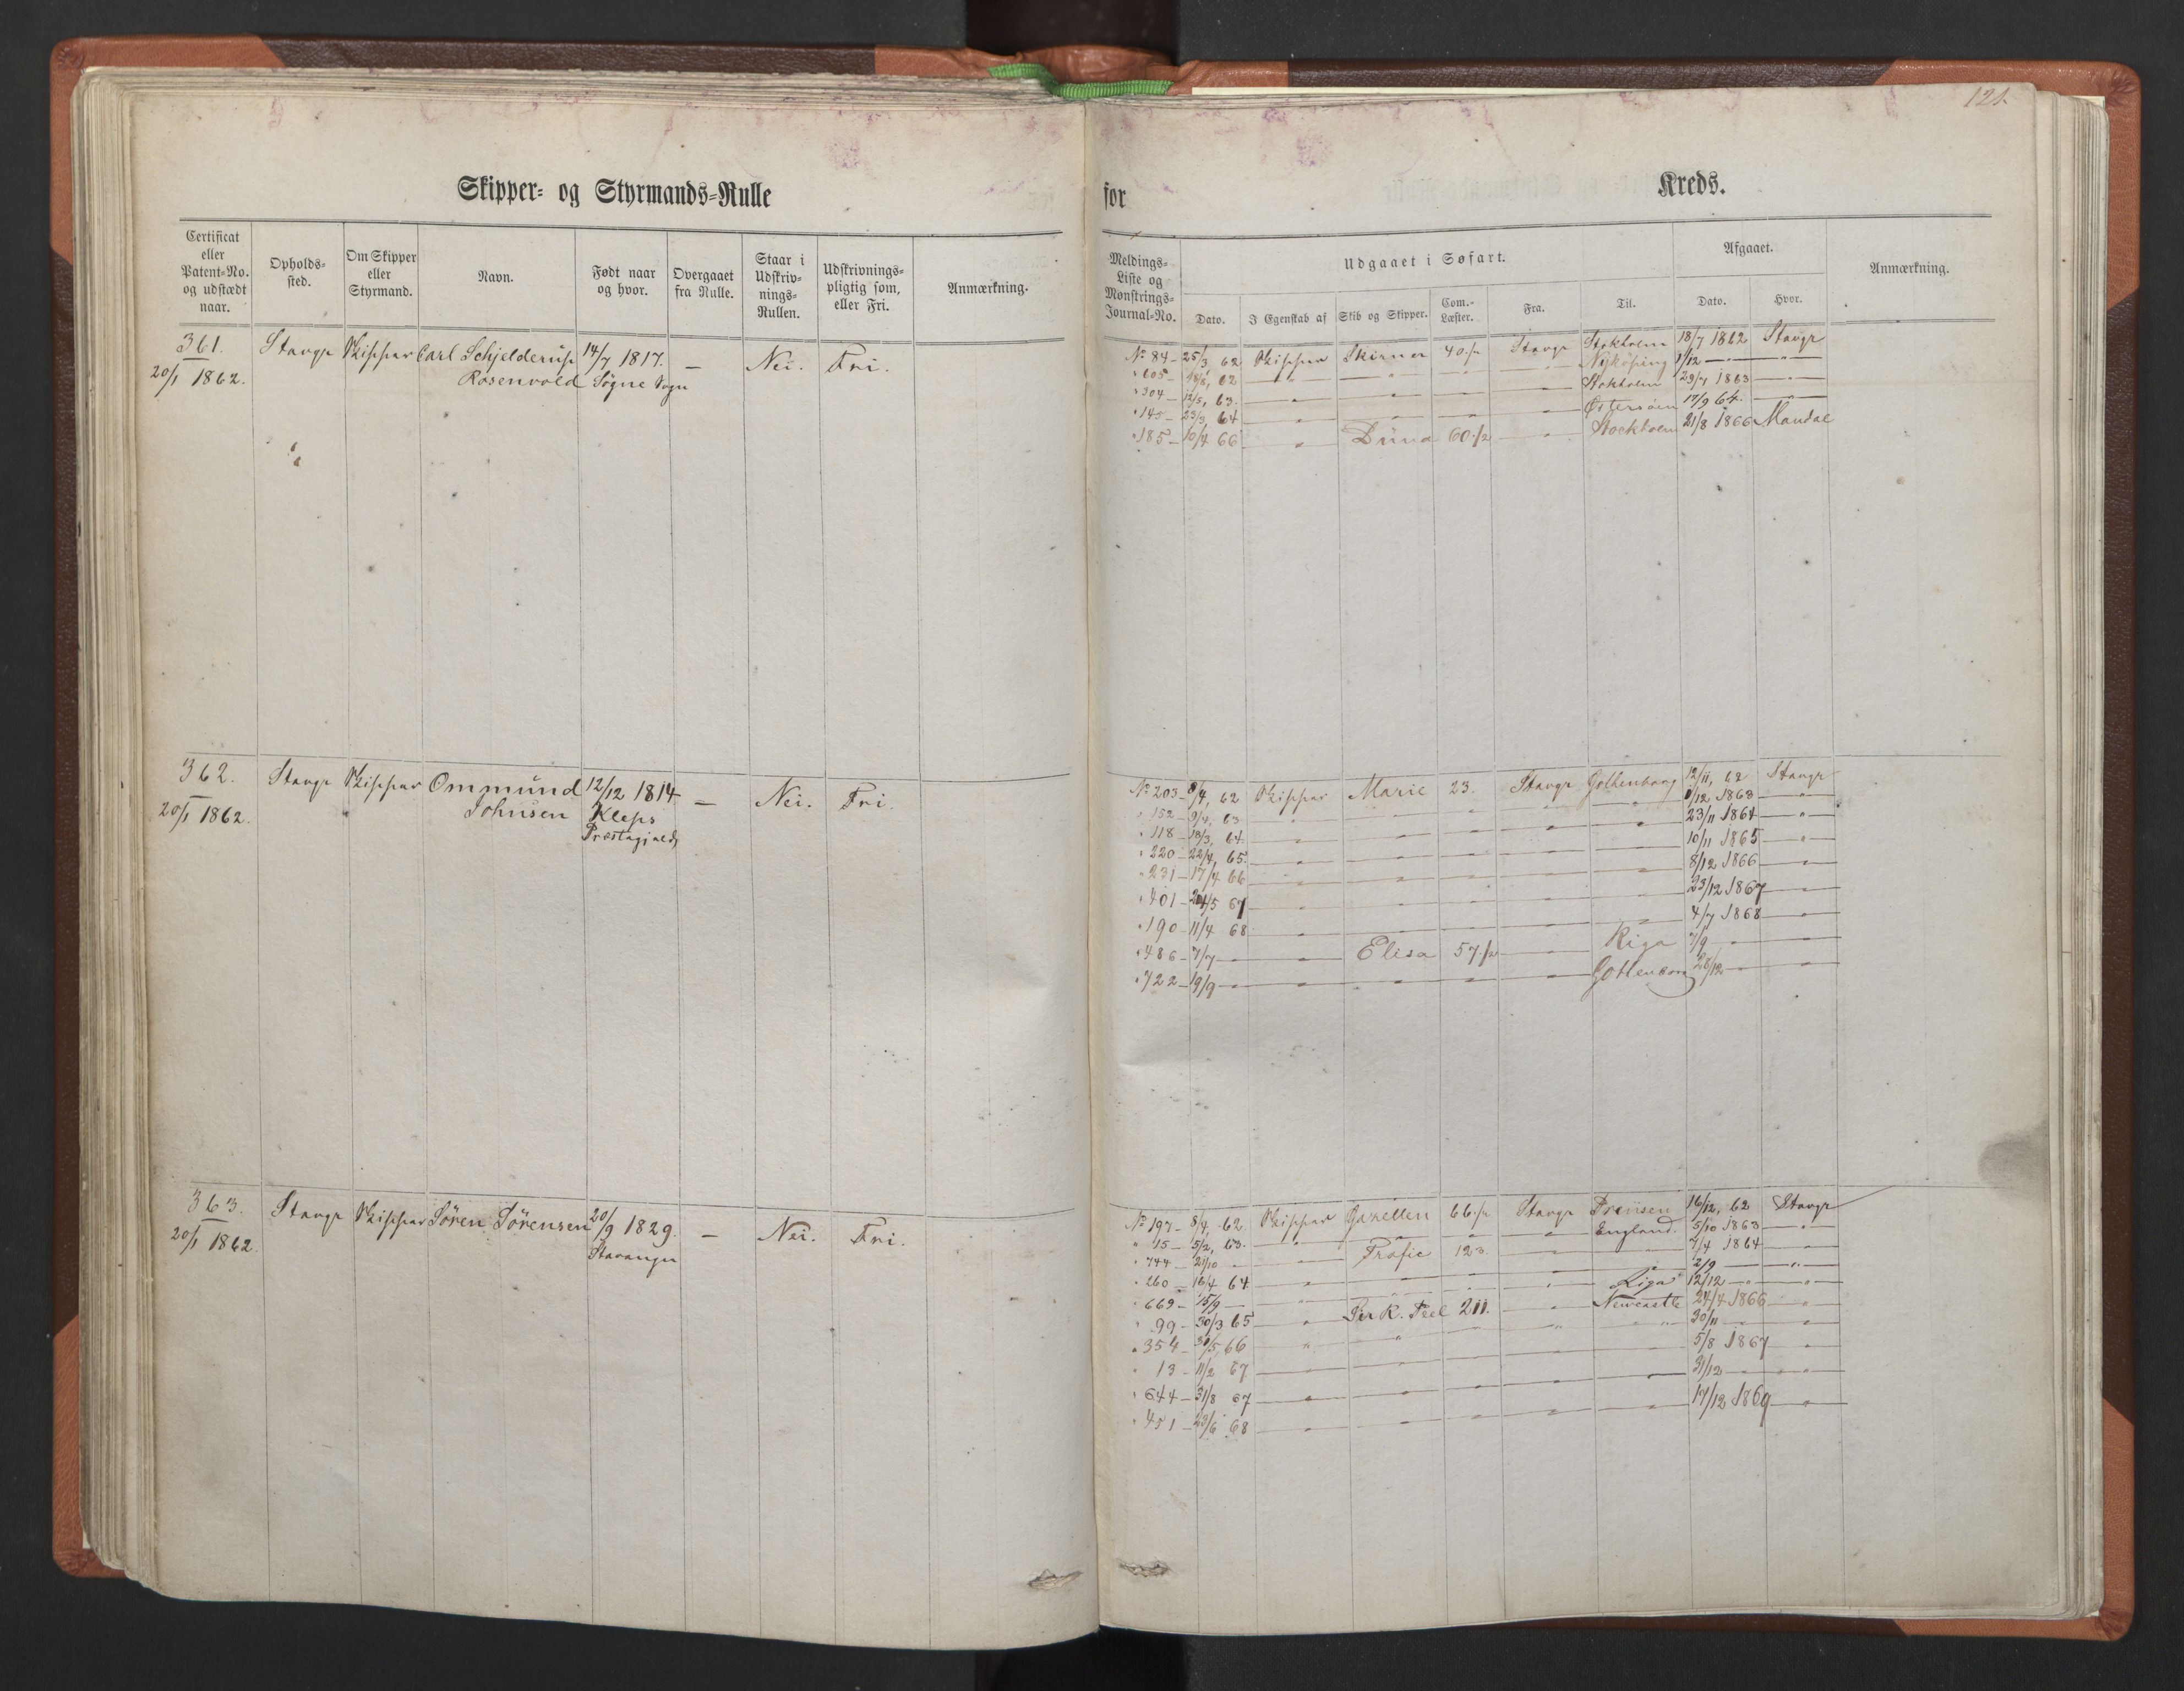 121.
Skipper- og Styrmands-Rulle
for Kreds.
Certificat eller Patent-No. og udstædt naar.
Opholds-sted.
Om Skipper eller Styrmand.
Navn.
Født naar og hvor.
Overgaaet fra Rulle.
Staar i Udskriv-nings-Rullen.
Udskrivnings-pligtig som, eller Fri.
Anmærkning.
Meldings-Liste og Mønstrings-Journal-No.
Udgaaet i Søfart.
Dato. I Egenskab af Skib og Skipper. Com.-Læster. Fra. Til.
Afgaaet.
Dato. Hvor.
Anmærkning.
361. Stavgr Skipper Carl Schjelderup 14/7 1817. — Nei. Fri.
20/1 1862. Rosenvold Søgne Sogn
No 84 – 25/3 62 Skipper Skirner 40 1/2 Stavgr Stokholm 18/7 1862 Stavgr
" 605 – 18/8, 62 — " — " — " — " — Nykøping 1/12 — " — " —
" 304 – 12/5, 63. — " — " — " — " — Stokholm 29/7 1863 — " —
" 145 – 23/3 64 — " — " — " — " — Østersøen 17/9 64. — " —
" 185 – 10/4 66 — " — Duna 60 1/2 — " — Stockholm 21/8 1866 Mandal
362. Stavgr Skipper Ommund 12/12 1814. — Nei. Fri.
20/1 1862. Johnsen Kleps
Præstegjæld
No 203 – 9/4, 62 Skipper Marie 23. Stavgr Gothenborg 12/11, 62 Stavgr
" 152 – 9/4, 63 — " — " — " — " — " — 1/12 1863 — " —
" 118 – 18/3, 64 — " — " — " — " — " — 23/11 1864 — " —
" 220 – 22/4, 65. — " — " — " — " — " — 10/11 1865 — " —
" 231 – 17/4 66 — " — " — " — " — " — 8/12 1866 — " —
" 401 – 24/5 67 — " — " — " — " — " — 23/12 1867 — " —
" 190 – 11/4 68 — " — " — " — " — " — 4/7 1868 — " —
" 486 – 7/7 — " — " — Elisa 57 1/2 — " — Riga 7/9 — " — " —
" 722 – 19/9 — " — " — " — " — " — Gottenborg 28/12 — " — " —
363. Stavgr Skipper Søren Sørensen 20/9 1829. — Nei. Fri.
20/1 1862. Stavanger
No 197 – 8/4, 62 Skipper Gazellen 66 1/2 Stavgr Preusen 16/12, 62 Stavgr
" 15 – 5/2, 63. — " — " — " — " — England. 5/10 1863 — " —
" 744 – 21/10 — " — " — Trafic 123. — " — " — 7/4 1864 — " —
" 260 – 16/4 64 — " — " — " — " — " — 2/9 — " — " —
" 669 – 15/9 — " — " — " — " — " — Riga 12/12 — " — " —
" 99 – 30/3 65 — " — Sir R. Peel 211. — " — Newcastle 24/4 1866 — " —
" 354 – 30/5 66 " " " " " 30/11 — " — " —
" 13 – 11/2 67 — " — " — " — " — " — 5/8 1867 — " —
" 644 – 31/8 67 — " — " — " — " — " — 31/12 — " — " —
" 451 – 23/6 68 — " — " — " — " — " — 17/12 1869 — " —